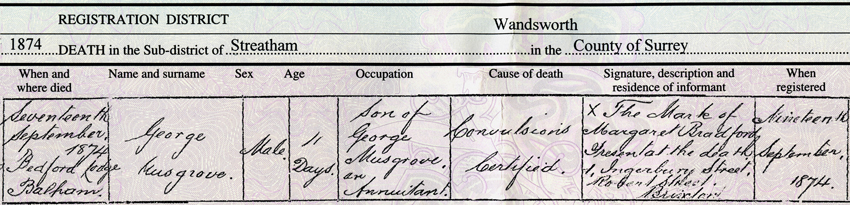 REGISTRATION DISTRICT Wandsworth
1874 DEATH in the Sub-district of Streatham in the County of Surrey
When and where died
Name and surname
Sex
Age
Occupation
Cause of death
Signature, description and residence of informant
When registered
Seventeenth
September,
1874
Bedford Lodge
Balham.
George
Musgrove.
Male.
11
Days.
Son of
George
Musgrove,
an
Annuitant.
Convulsions
Certified.
X The Mark of
Margaret Bradford
Present at the death
1, Street,
Robert Street
Brixton
Nineteenth
September,
1874.